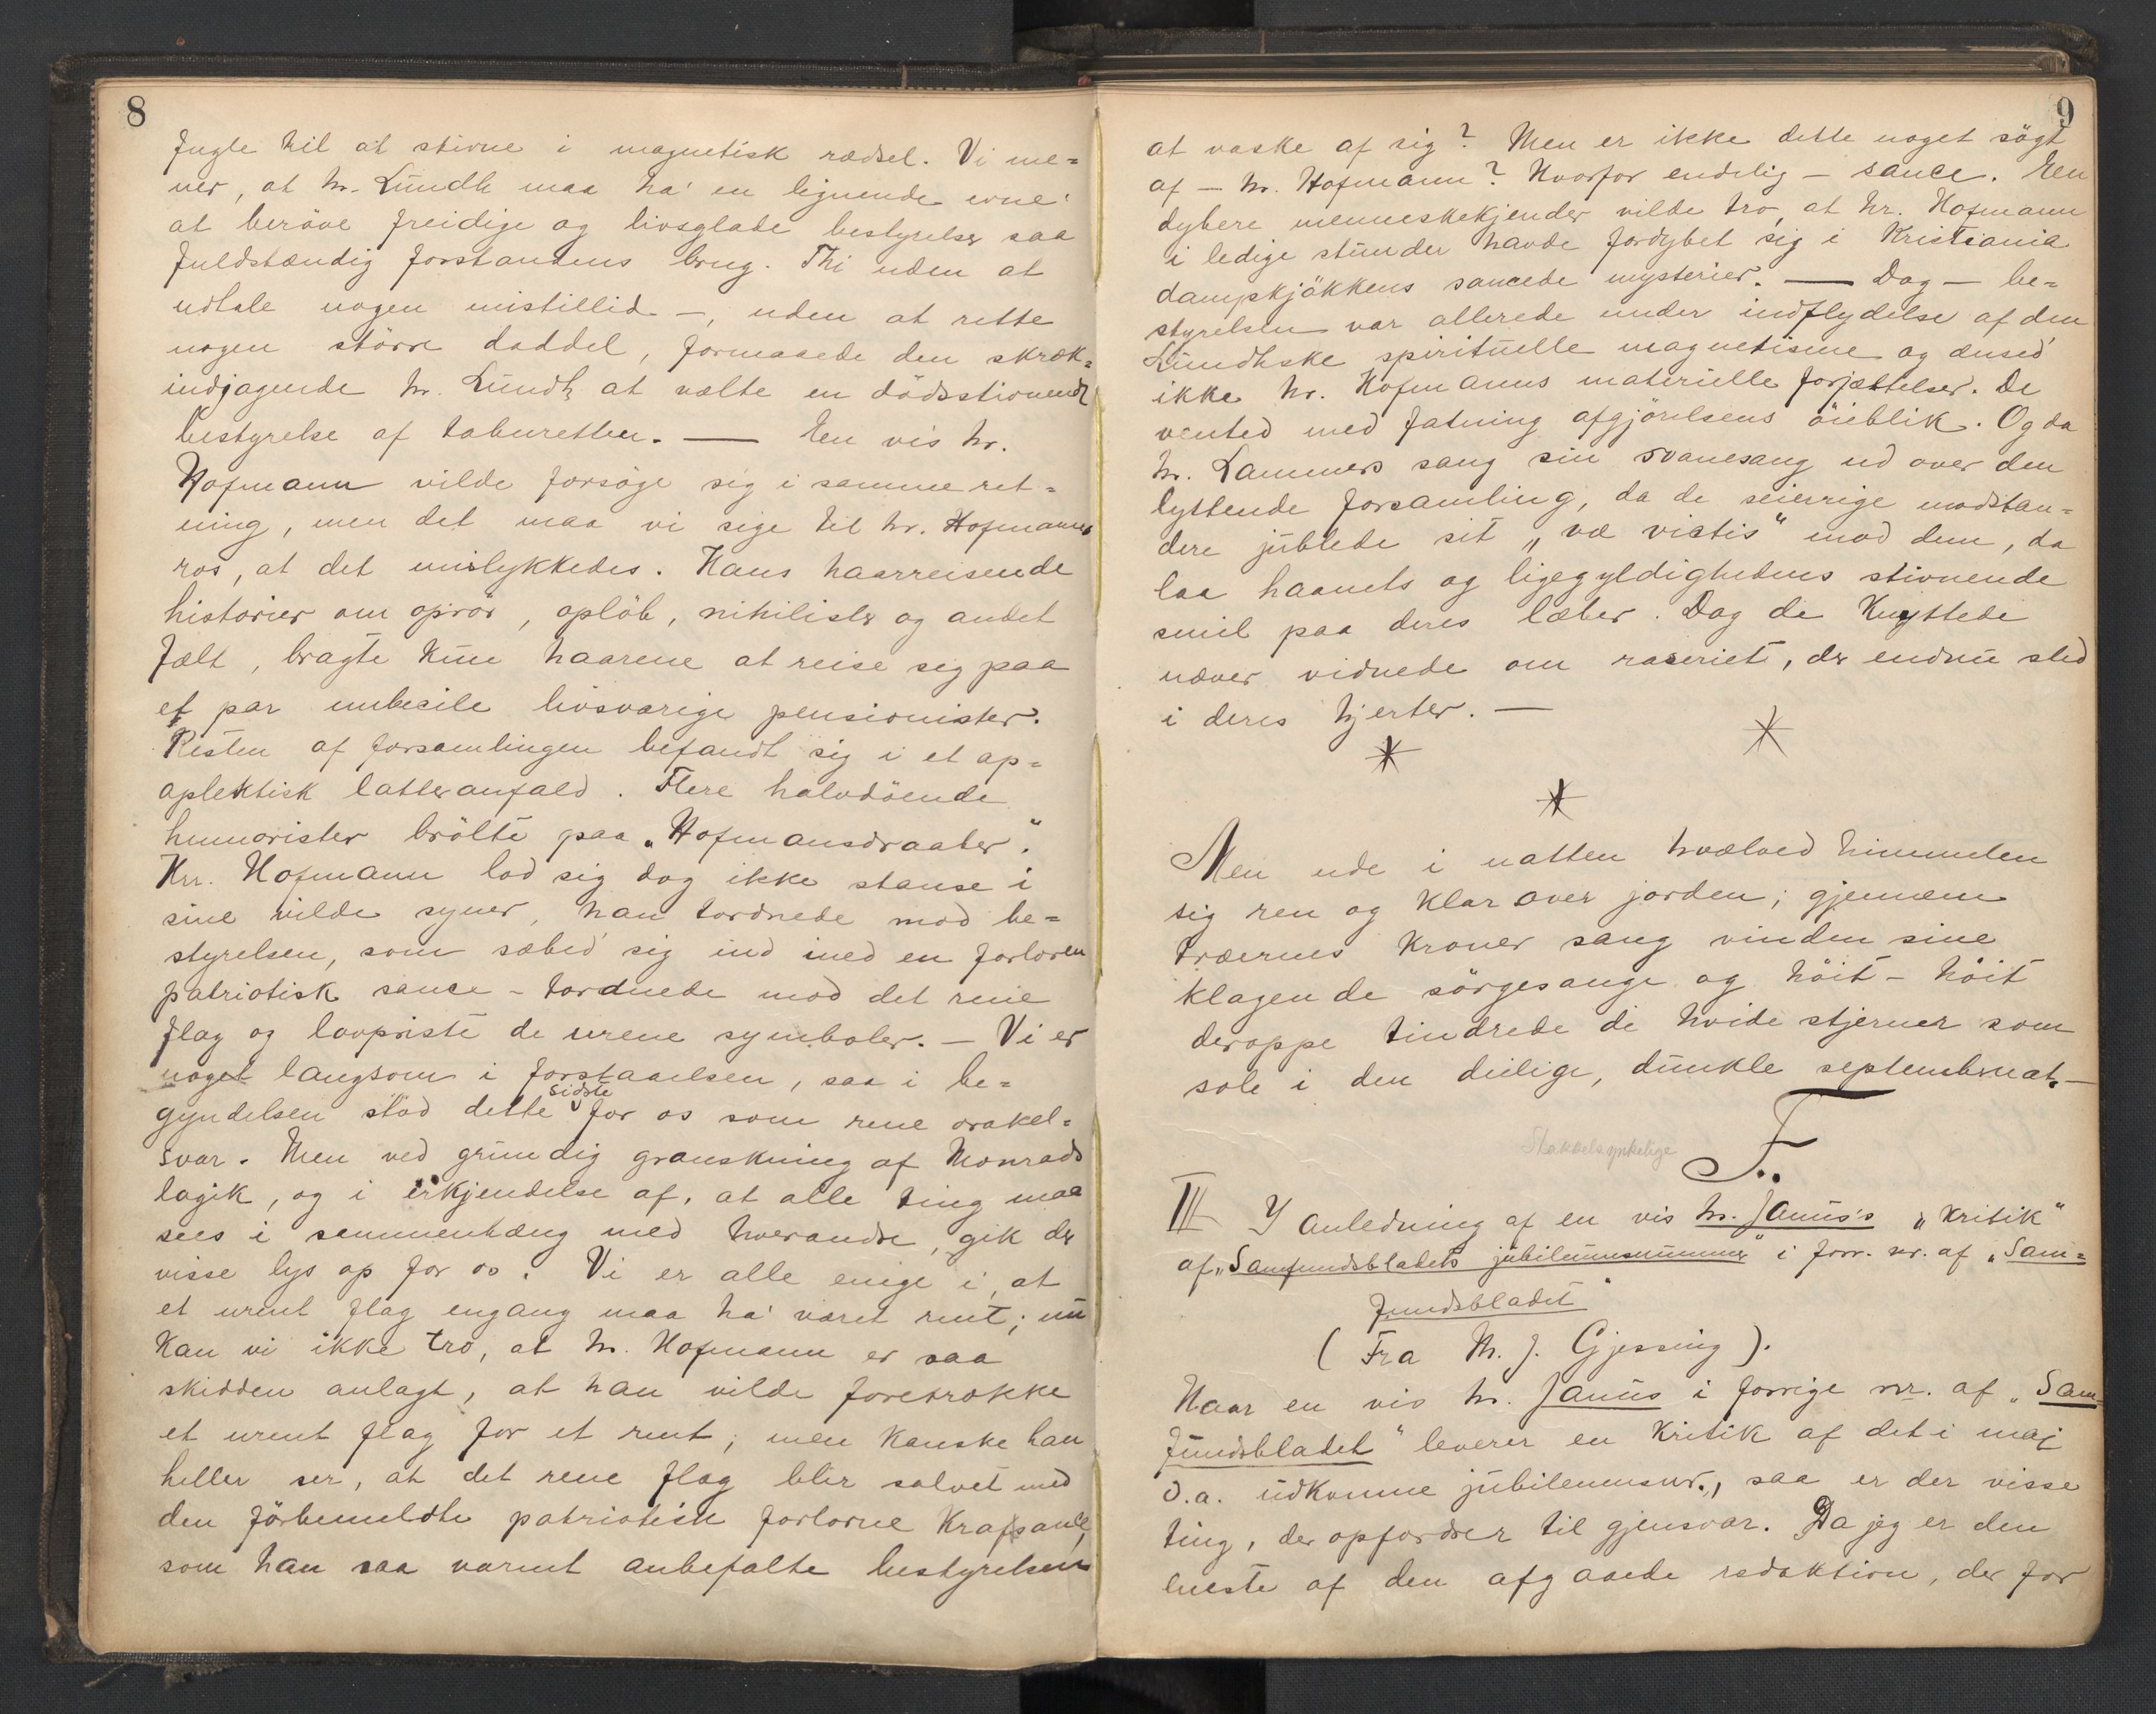 8
fugle til at stivne i magnetisk rædsel. Vi me=
ner, at hr. Lundh maa ha' en lignende evne:
at berøve freidige og livsglade bestyrelser saa
fuldstændig forstandens brug. Thi uden at
udtale nogen mistillid –, uden at rette
nogen større daddel, formaaede den skræk=
indjagende hr. Lundh at vælte en dødsstivnende
bestyrelse af taburetten. — En vis hr.
Hofmann vilde forsøge sig i samme ret=
ning, men det maa vi sige til hr. Hofmanns
ros, at det mislykkedes. Hans haarreisende
historier om oprør, opløb, nihilister og andet
fælt, bragte kun haarene at reise sig paa
et par imbecile livsvarige pensionister.
Resten af forsamlingen befandt sig i et ap=
oplektisk latteranfald. Flere halvdøende
humorister brølte paa „Hofmansdraaber".
Hr. Hofmann lod sig dog ikke stanse i
sine vilde syner, han tordnede mod be=
styrelsen, som sæbed' sig ind med en forloren
patriotisk sauce – tordnede mod det rene
flag og lovpriste de urene symboler. – Vi er
noget langsom i forstaaelsen, saa i be=
gyndelsen stod dette sidste for os som rene orakel=
svar. Men ved grundig granskning af Monrads
logik, og i erkjendelse af, at alle ting maa
sees i sammenhæng med hverandre, gik der
visse lys op for os. Vi er alle enige i, at
et urent flag engang maa ha' været rent; nu
kan vi ikke tro, at hr. Hofmann er saa
skidden anlagt, at han vilde foretrække
et urent flag for et rent; men kanske han
heller ser, at det rene flag blir salvet med
den førbemeldte patriotisk forlorne kraftsauce,
som han saa varmt anbefalte bestyrelsen
9
at vaske af sig? Men er ikke dette noget søgt
af – hr. Hofmann? Hvorfor endelig – sauce. En
dybere menneskekjender vilde tro, at hr. Hofmann
i ledige stunder havde fordybet sig i Kristiania
dampkjøkkens saucede mysterier. — Dog – be=
styrelsen var allerede under indflydelse af den
Lundhske spirituelle magnetisme og ænsed'
ikke hr. Hofmanns materielle forjættelser. De
vented med fatning afgjørelsens øieblik. Og da
hr. Lammers sang sin svanesang ud over den
lyttende forsamling, da de seierrige modstan=
dere jublede sit „væ victis" mod dem, da
laa haanets og ligegyldighedens stivnende
smil paa deres læber. Dog de knyttede
næver vidnede om raseriet, der endnu sled
i deres hjerter. —
* * *
Men ude i natten hvælved himmelen
sig ren og klar over jorden; gjennem
træernes kroner sang vinden sine
klagende sørgesange og høit – høit
deroppe tindrede de hvide stjerner som
sole i den deilige, dunkle septembernat. –
F.
III I anledning af en vis hr. Janus's „kritik"
af „Samfundsbladets jubilæumsnummer" i forr. nr. af „Sam=
fundsbladet"
(Fra M. J. Gjessing).
Naar en vis hr. Janus i forrige nr. af „Sam=
fundsbladet" leverer en kritik af det i maj
d.a. udkomne jubilæumsnr., saa er der visse
ting, der opfordrer til gjensvar. Da jeg er den
eneste af den afgaaede redaktion, der for